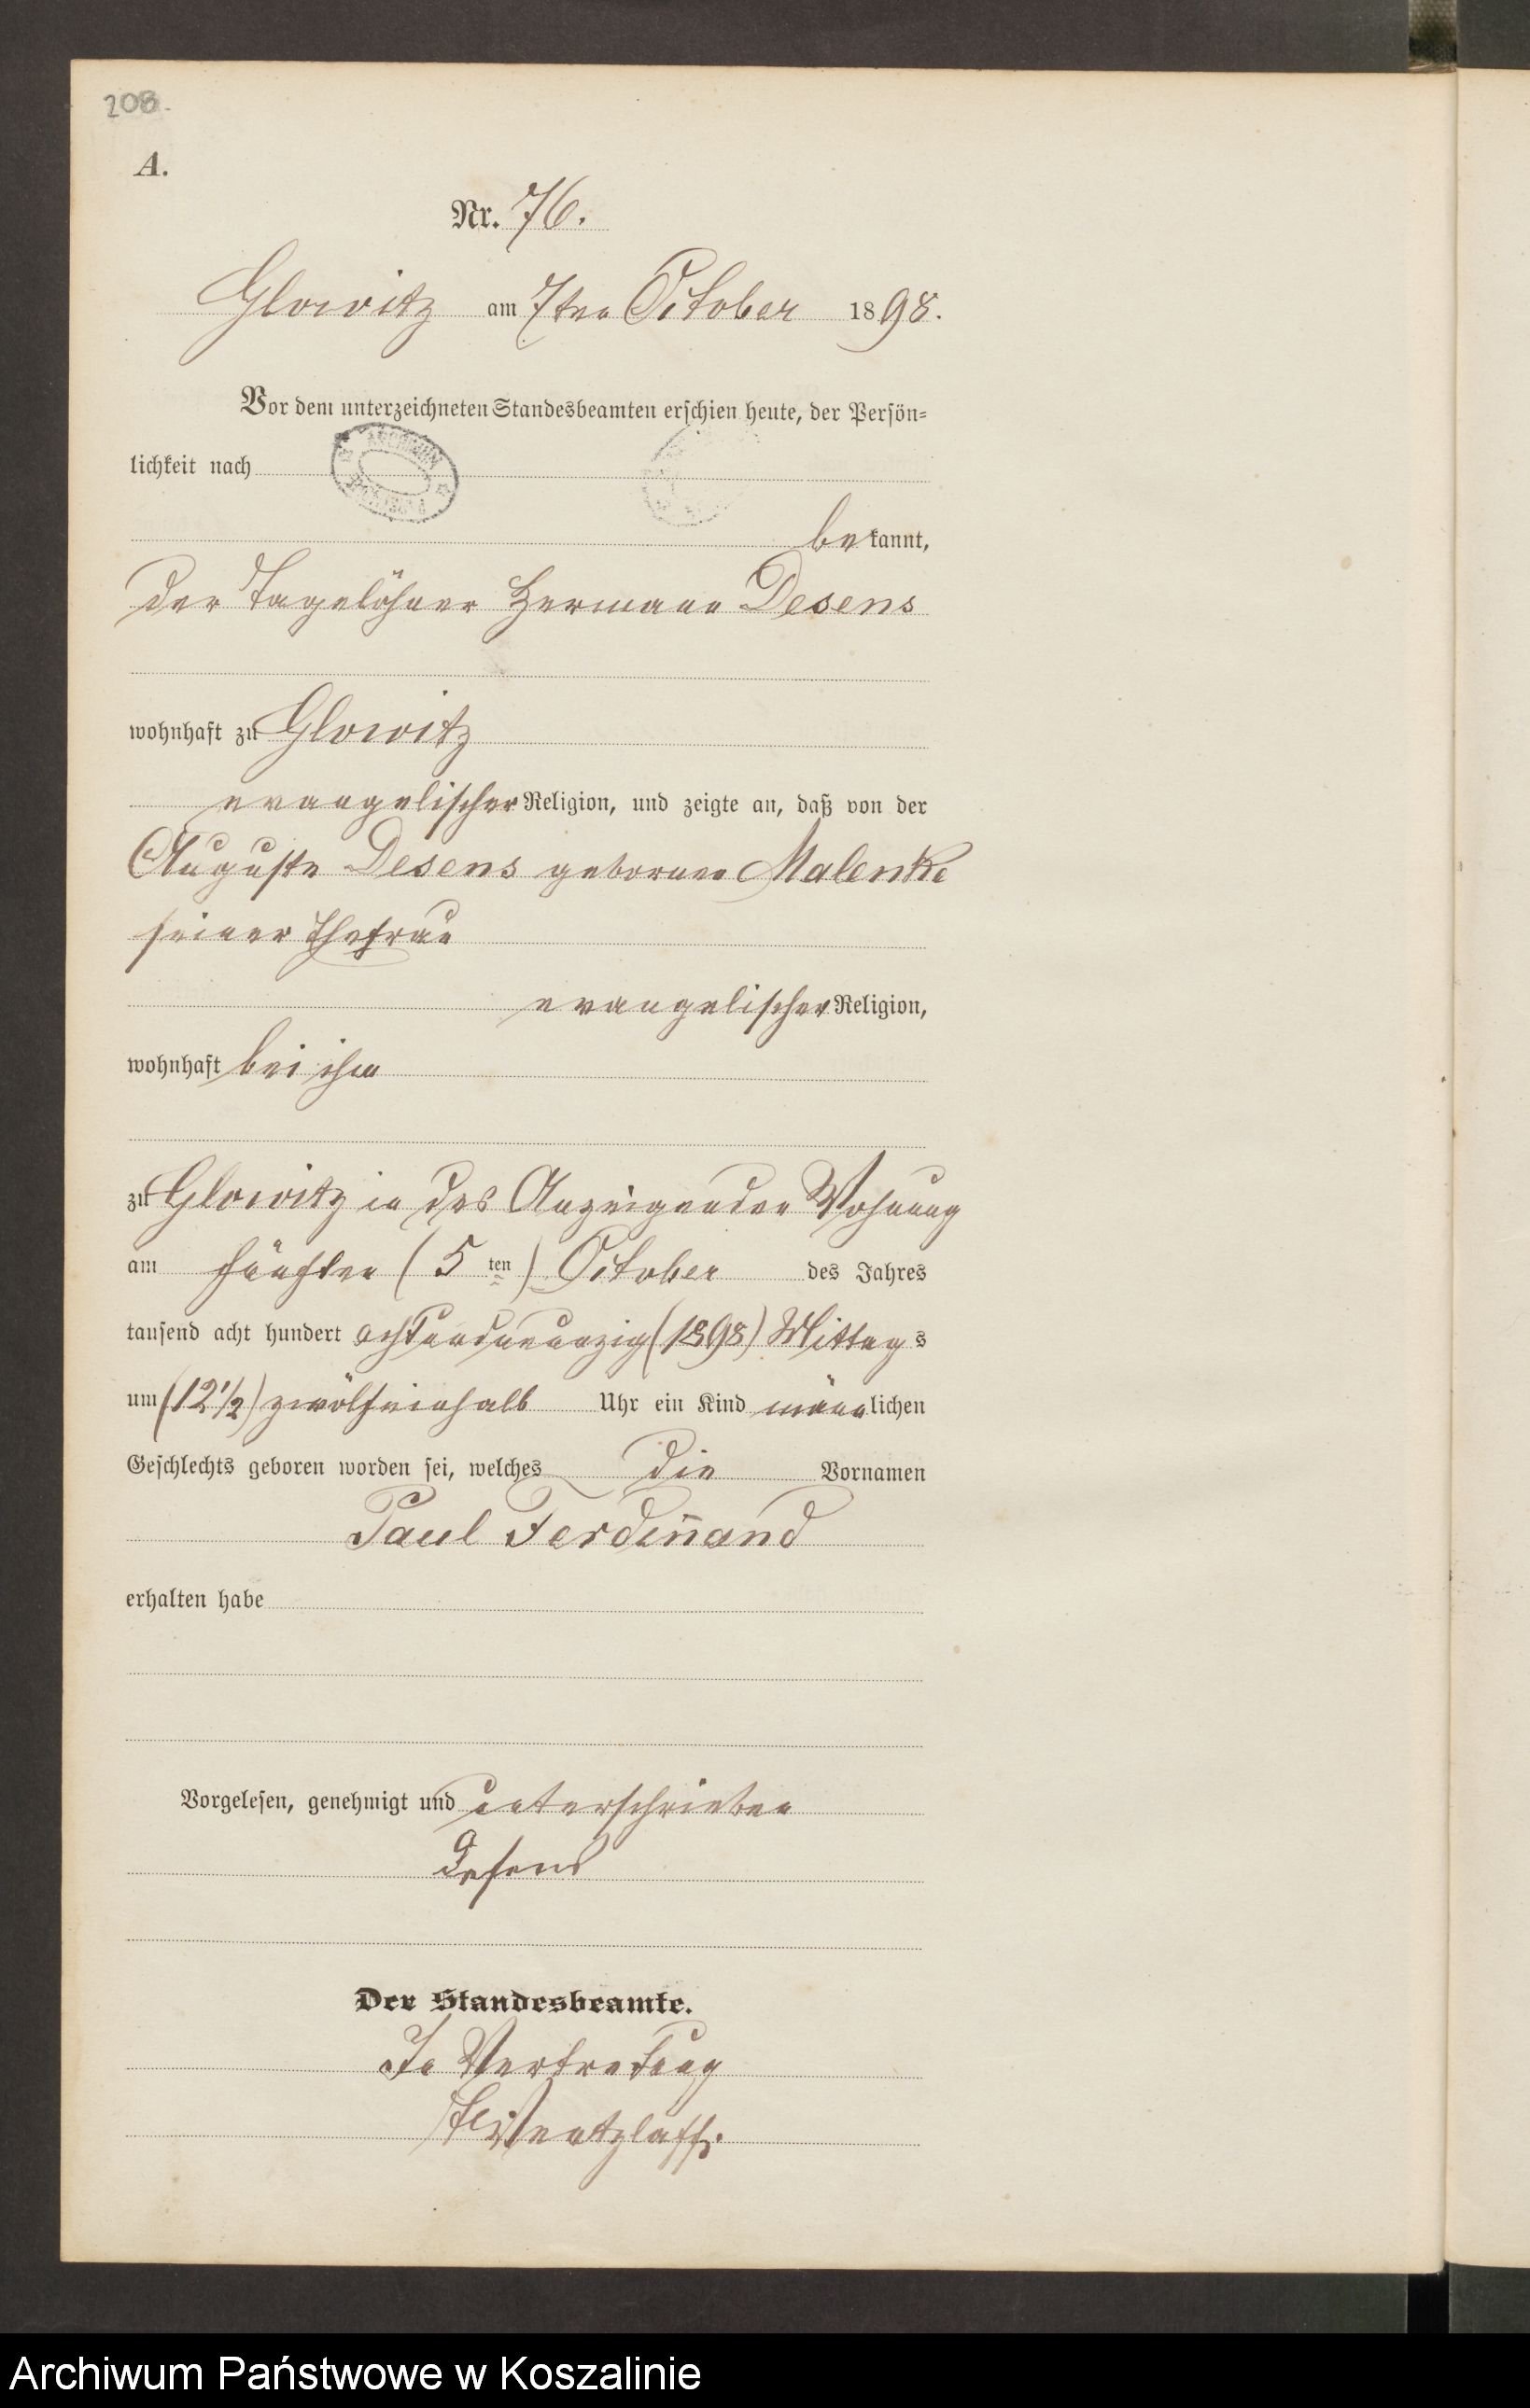 208.
A.
Nr. 76.
Glowitz am 7ten October 1898.
Vor dem unterzeichneten Standesbeamten erschien heute, der Persön-
lichkeit nach
ARCHIWUM
bekannt,
der Tagelöhner Hermann Desens
wohnhaft zu Glowitz
evangelischer Religion, und zeigte an, daß von der
Auguste Desens geborene Malenke
seiner Ehefrau
evangelischer Religion,
wohnhaft bei ihm
zu Glowitz in des Anzeigenden Wohnung
am fünften (5ten) October des Jahres
tausend acht hundert achtundneunzig (1898) Mittags
um (12 1/2) zwölfeinhalb Uhr ein Kind männlichen
Geschlechts geboren worden sei, welches die Vornamen
Paul Ferdinand
erhalten habe
Vorgelesen, genehmigt und unterschrieben
Desens
Der Standesbeamte.
In Vertretung
Wentzlaff.
Archiwum Państwowe w Koszalinie